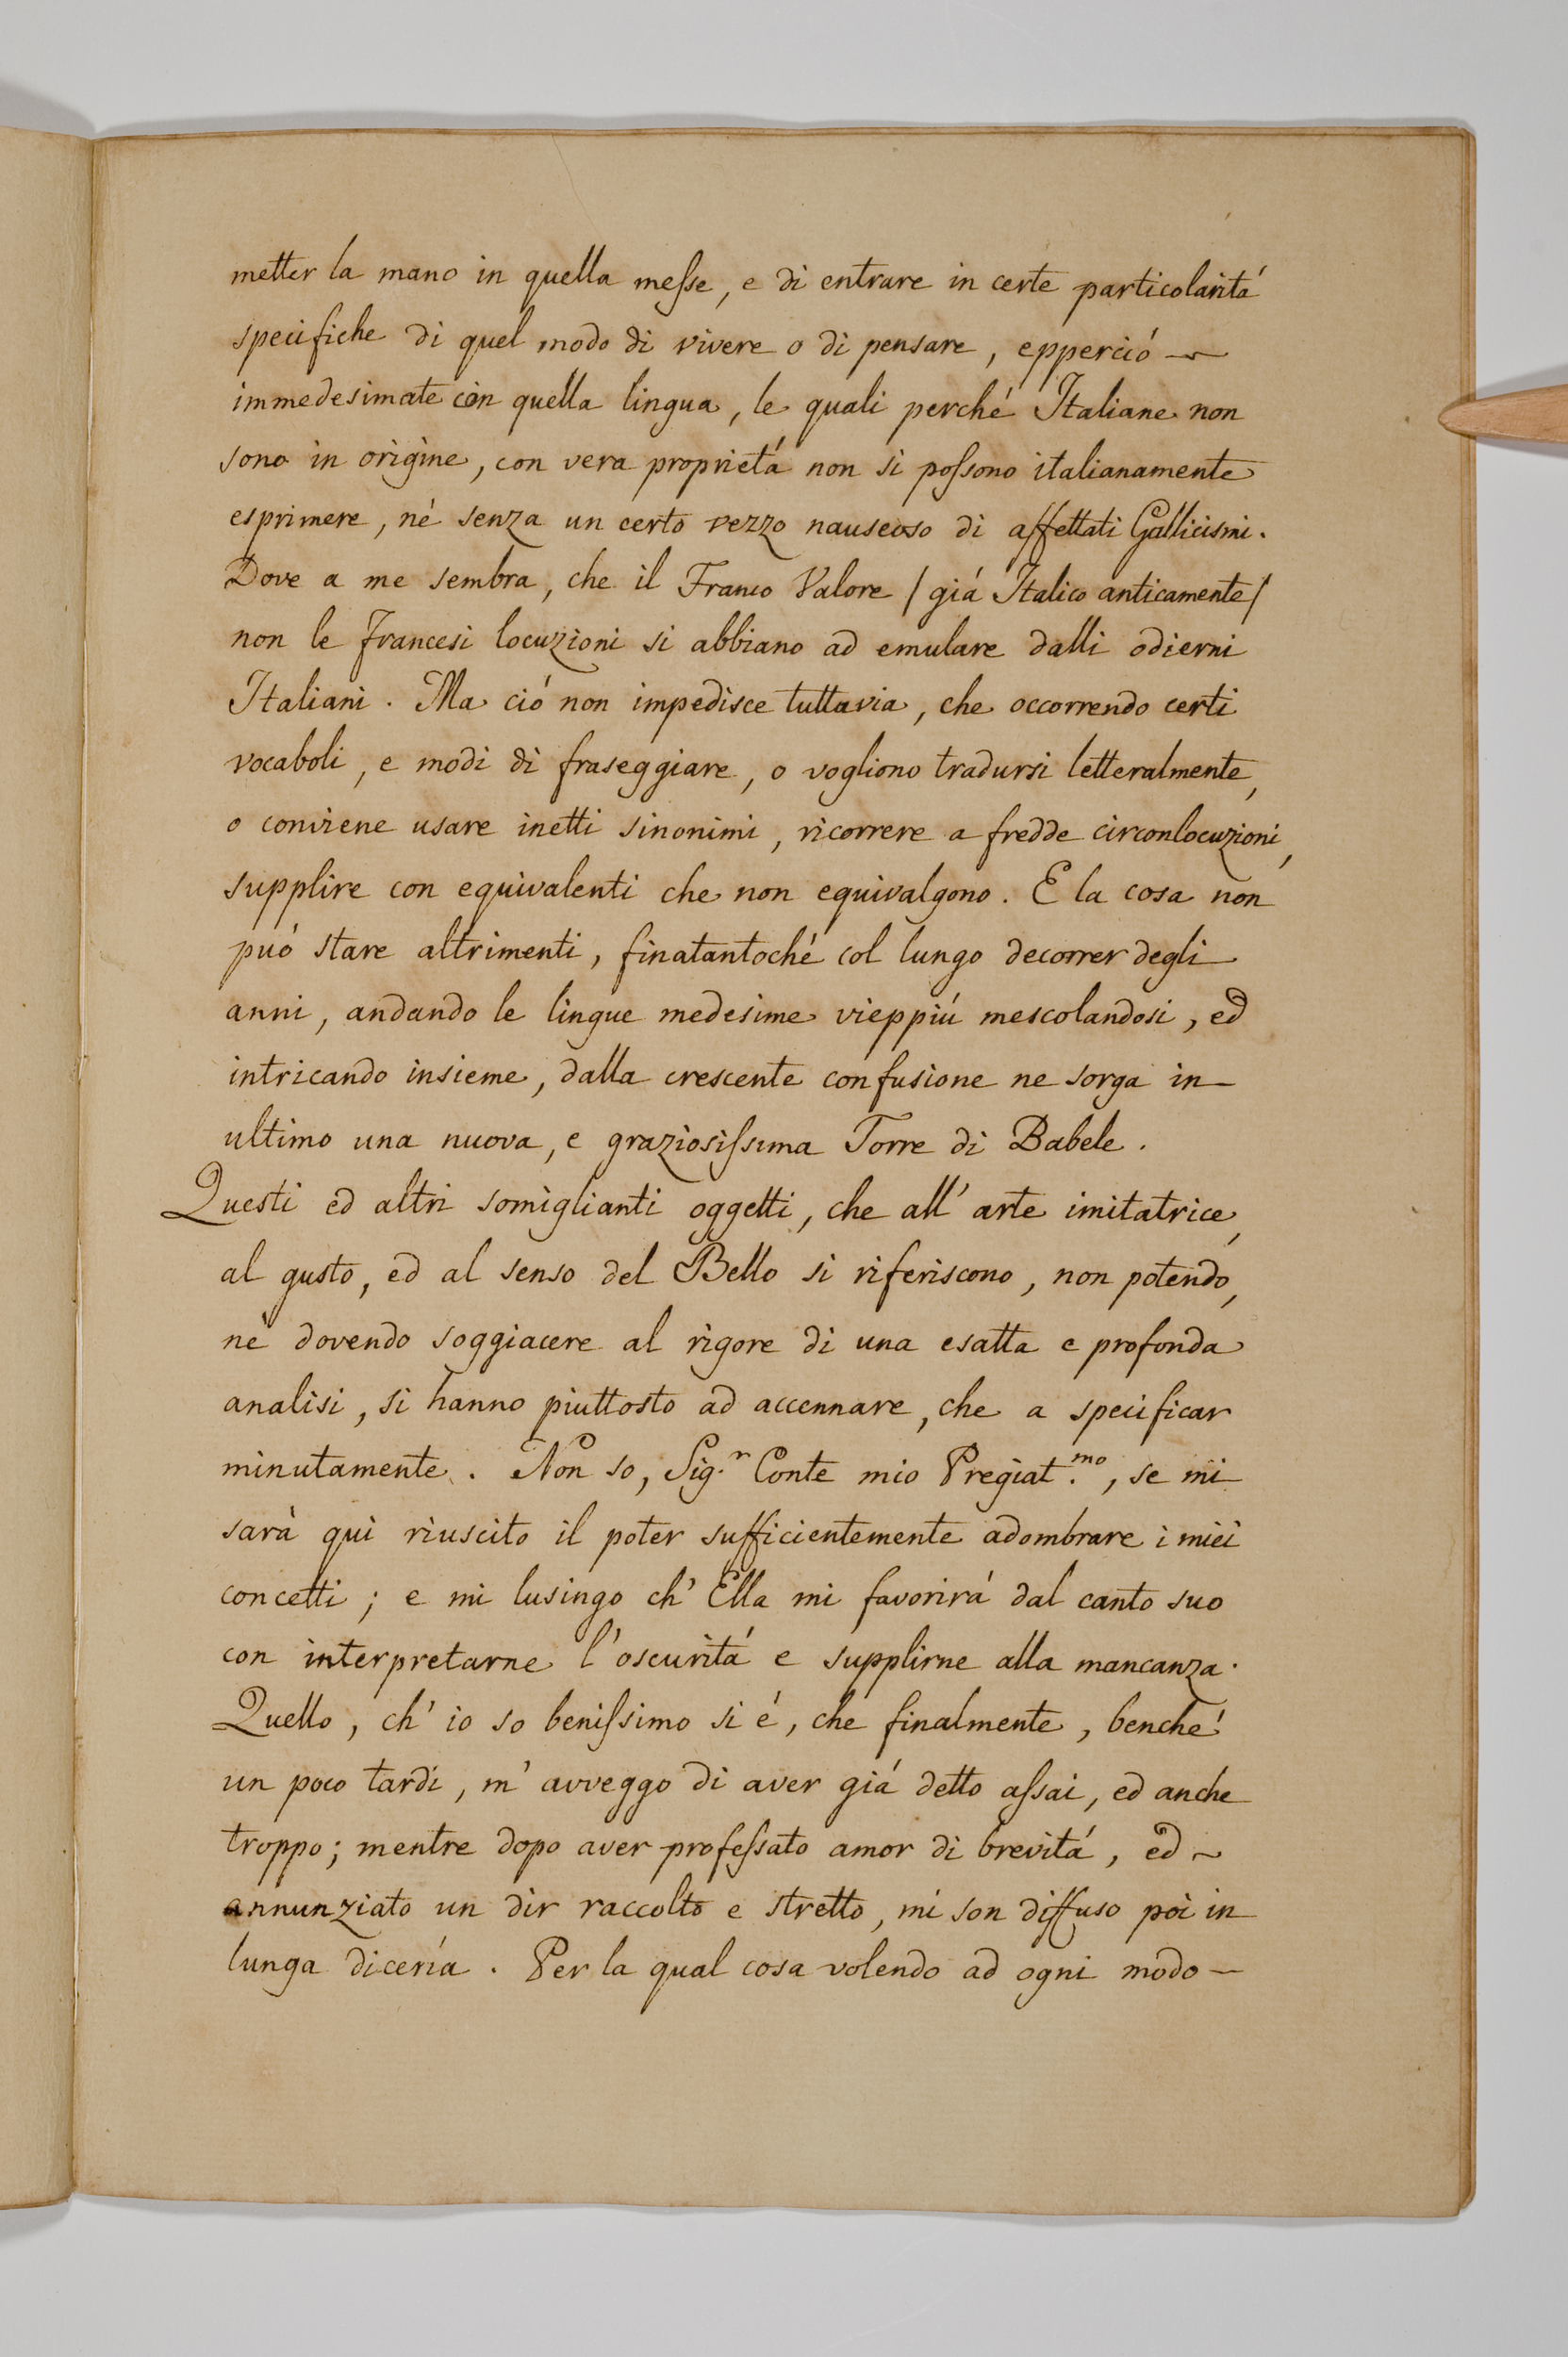 metter la mano in quella meſse, e di entrare in certe particolaritá
specifiche di quel modo di vivere o di pensare, epperció —
immedesimate con quella lingua, le quali perché Italiane non
sono in origine, con vera proprietá non si poſsono italianamente
esprimere, né senza un certo vezzo nauseoso di affettati Gallicismi.
Dove a me sembra, che il Franco Valore / giá Italico anticamente /
non le francesi locuzioni si abbiano ad emulare dalli odierni
Italiani. Ma ció non impedisce tuttavia, che occorrendo certi
vocaboli, e modi di fraseggiare, o vogliono tradursi letteralmente,
o conviene usare inetti sinonimi, ricorrere a fredde circonlocuzioni,
supplire con equivalenti che non equivalgono. E la cosa non
puó stare altrimenti, finatantoché col lungo decorrer degli
anni, andando le lingue medesime vieppiú mescolandosi, ed
intricando insieme, dalla crescente confusione ne sorga in—
ultimo una nuova, e graziosiſsima Torre di Babele.
Questi ed altri somiglianti oggetti, che all' arte imitatrice,
al gusto, ed al senso del Bello si riferiscono, non potendo,
nè dovendo soggiacere al rigore di una esatta e profonda
analisi, si hanno piuttosto ad accennare, che a specificar
minutamente. Non so, Sig.r Conte mio Pregiat.mo, se mi
sarà qui riuscito il poter sufficientemente adombrare i miei
concetti; e mi lusingo ch' Ella mi favorirá dal canto suo
con interpretarne l'oscuritá e supplirne alla mancanza.
Quello, ch' io so beniſsimo si é, che finalmente, benché
un poco tardi, m' avveggo di aver giá detto aſsai, ed anche
troppo; mentre dopo aver profeſsato amor di brevitá, ed ~
annunziato un dir raccolto e stretto, mi son diffuso poi in
lunga dicería. Per la qual cosa volendo ad ogni modo —